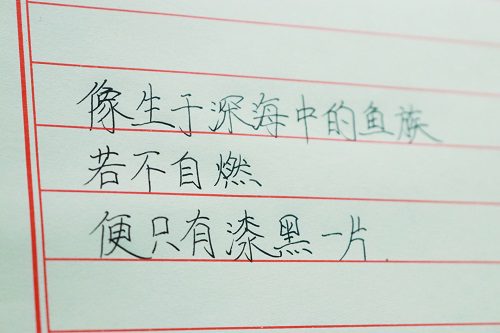 像生于深海中的鱼族
若不自燃
便只有漆黑一片.